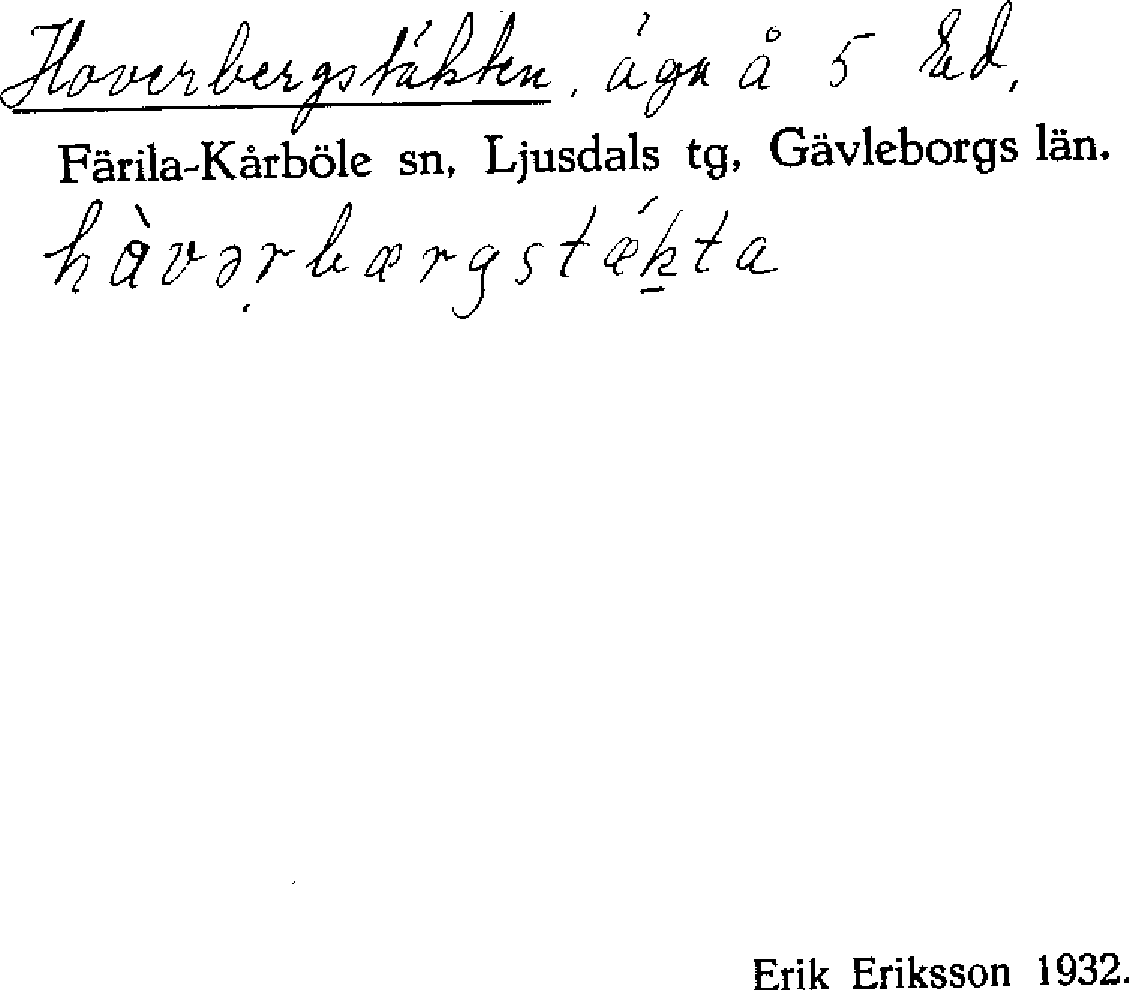 Hoverbergstäkten, äga å 5 Ed.
Färila-Kårböle sn, Ljusdals tg, Gävleborgs län.
hàvərbærgstǽkta
Erik Eriksson 1932.